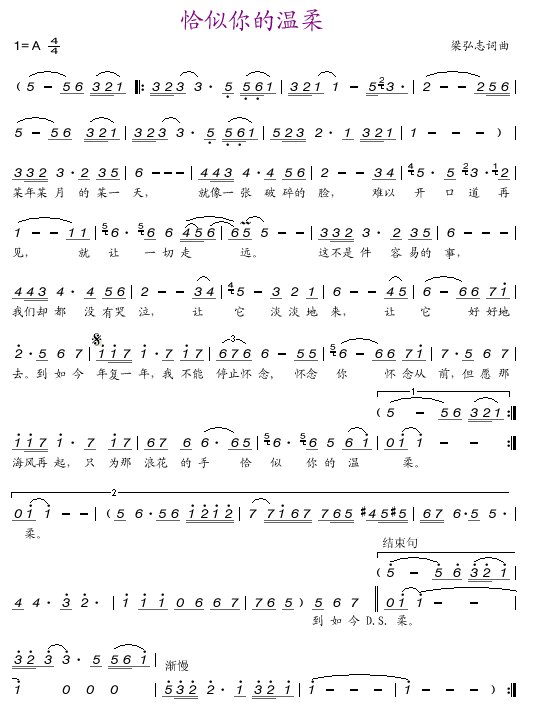 恰似你的温柔
1=A 4/4 梁弘志词曲
( 5 - 5 6 3 2 1 |: 3 2 3 3 · 5 5 6 1 | 3 2 1 1 - 5 2 3 · | 2 - - 2 5 6 |
5 - 5 6 3 2 1 | 3 2 3 3 · 5 5 6 1 | 5 2 3 2 · 1 3 2 1 | 1 - - ) |
3 3 2 3 · 2 3 5 | 6 - - - | 4 4 3 4 · 4 5 6 | 2 - - 3 4 | 4 5 · 5 2 3 · 1 2 |
某年某月的某一天, 就像一张破碎的脸, 难以开口道再
1 - - 1 1 | 5 6 · 5 6 6 4 5 6 | 6 5 5 - - | 3 3 2 3 · 2 3 5 | 6 - - - |
见, 就让一切走远。 这不是件容易的事,
4 4 3 4 · 4 5 6 | 2 - - 3 4 | 4 5 - 3 2 3 1 | 6 - - 4 5 | 6 - 6 6 7 1 |
我们却都没有哭泣, 让它淡淡地来, 让它好好地
2 · 5 6 7 | 1 1 7 1 · 7 1 7 | 6 7 6 6 - 5 5 | 5 6 - 6 6 7 1 | 7 · 5 6 7 |
去。到如今年复一年,我不能停止怀念, 怀念你怀念从前,但愿那
1
( 5 - 5 6 3 2 1 :|
1 1 7 1 · 7 1 7 | 6 7 6 6 · 6 5 | 5 6 · 5 6 5 6 1 | 0 1 1 - - :|
海风再起,只为那浪花的手恰似你的温柔。
2
0 1 1 - - | ( 5 6 · 5 6 1 2 1 2 | 7 7 1 6 7 7 6 5 #4 5 #5 | 6 7 6 · 5 5 · |
柔。
结束句
( 5 - 5 6 3 2 1 |
4 4 · 3 2 · | 1 1 1 0 6 6 7 | 7 6 5 ) 5 6 7 || 0 1 1 - - |
到如今D.S.柔。
3 2 3 3 · 5 5 6 1 | 渐慢
1 0 0 0 | 5 3 2 2 · 1 3 2 1 | 1 - - - | 1 - - - ||